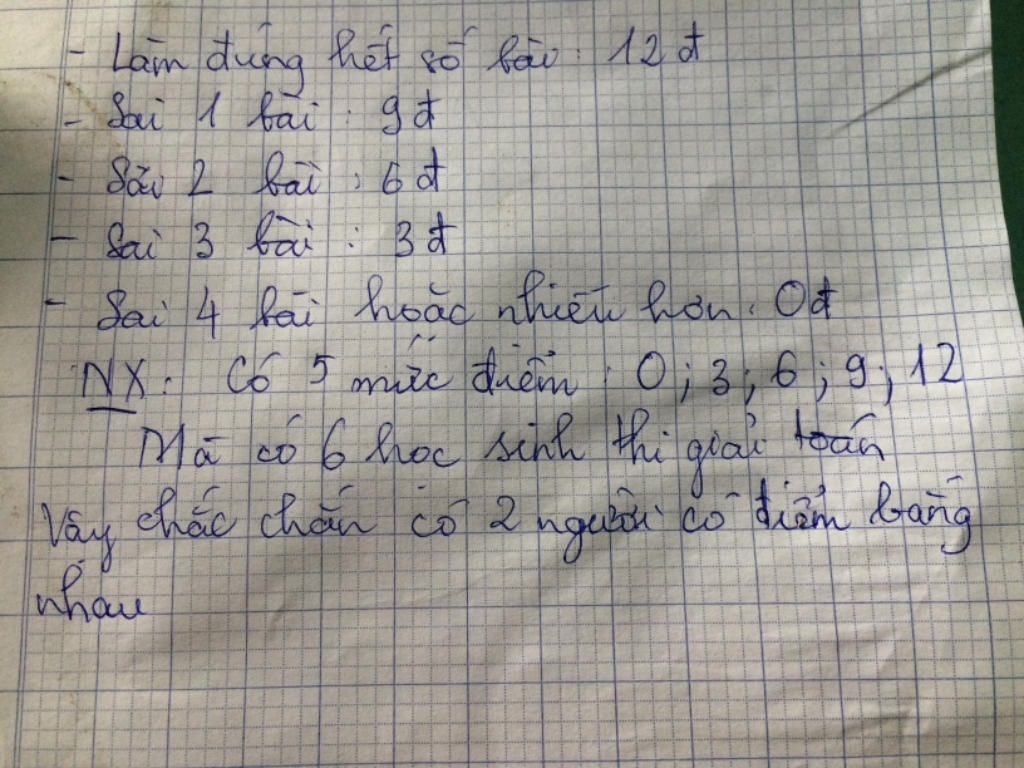 - Làm đúng hết số bài: 12 đ
- Sai 1 bài: 9đ
- Sai 2 bài: 6 đ
- Sai 3 bài: 3 đ
- Sai 4 bài hoặc nhiều hơn: 0đ
NX: Có 5 mức điểm: 0; 3; 6; 9; 12
Mà có 6 học sinh thi giải toán
Vậy chắc chắn có 2 người có điểm bằng
nhau